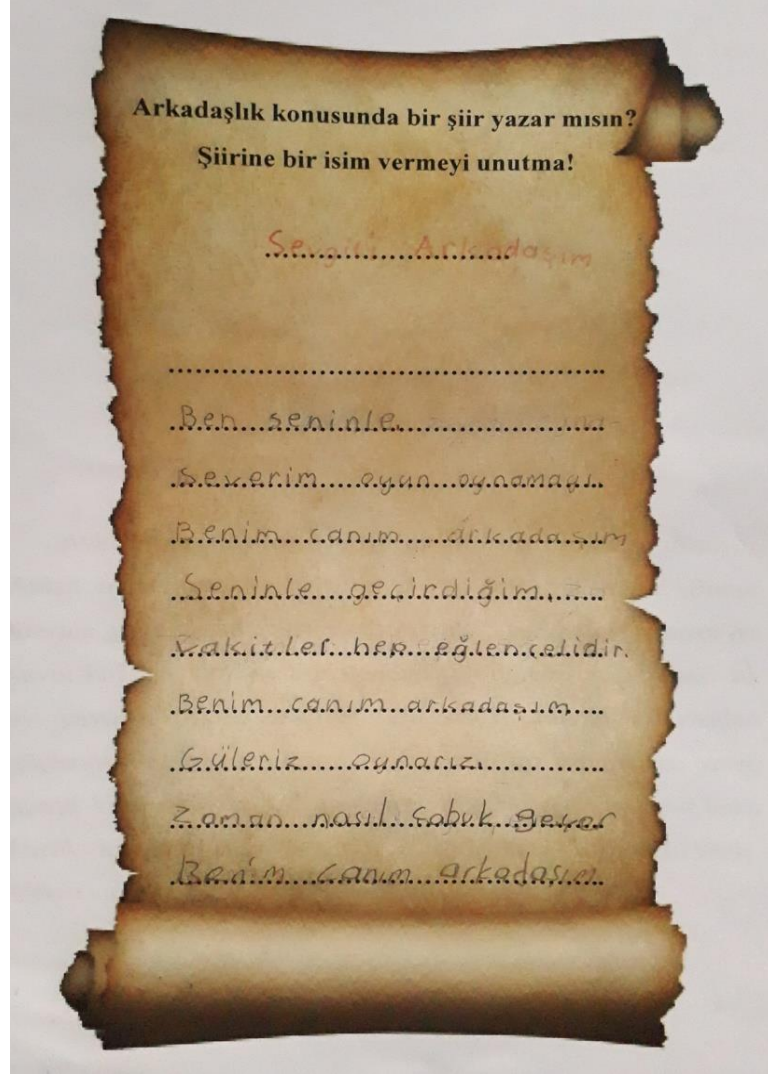 Arkadaşlık konusunda bir şiir yazar mısın?
Şiirine bir isim vermeyi unutma!
Sevgili Arkadaşım
Ben seninle
Severim oyun oynamayı.
Benim canım arkadaşım
Seninle geçirdiğim
Vakitler hep eğlencelidir.
Benim canım arkadaşım
Güleriz oynarız
Zaman nasıl çabuk geçer
Benim canım arkadaşım